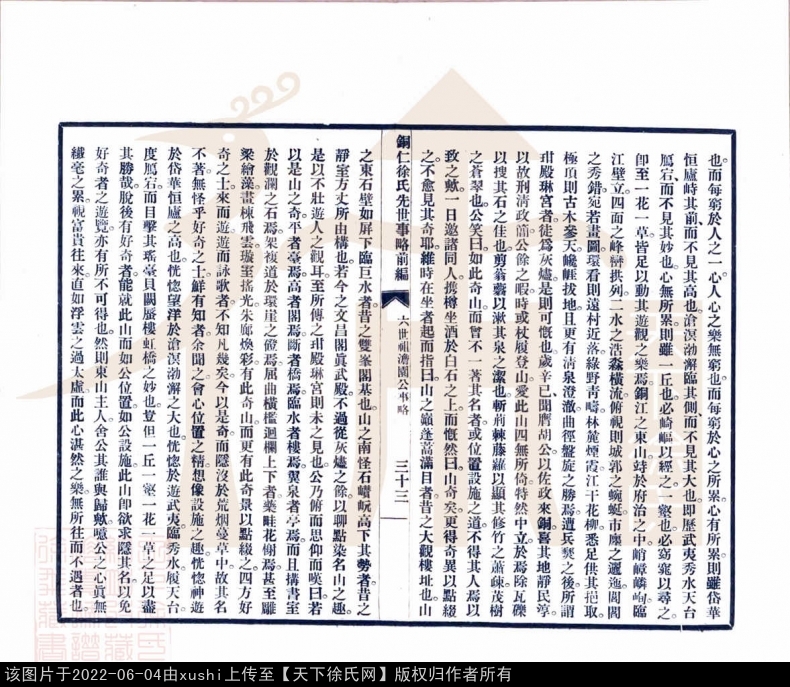 也而每窮於人之一心人心之樂無窮也而每窮於心之所累心有所累則雖岱華
恒廬峙其前而不見其高也滄溟渤澥臨其側而不見其大也即歷武夷秀水天台
鴈宕而不見其妙也心無所累則雖一丘也必崎嶇以經之一壑也必窈窕以尋之
卽至一花一草皆足以動其遊觀之樂焉銅江之東山蛓於府治之中峭嶂嶙峋臨
江壁立四面之峰巒拱列二水之浩淼橫流俯視則城郭之蜿蜒市廛之邐迤閭閻
之秀錯宛若畫圖環看則遠村近落綠野靑疇林麓煙霞江干花柳悉足供其挹取
極頂則古木參天巉崖拔地且更有淸泉澄澈曲徑盤旋之勝焉遭兵燹之後所謂
玵殿琳宮者徒爲灰燼是則可慨也歲辛巳聞膺胡公以佐政來銅喜其地靜民淳
以故刑淸政簡公餘之暇時或杖履登山愛此山四無所倚特然中立於焉除瓦礫
以搜其石之佳也剪翁蘙以漱其泉之潔也斬荊棘藤蘿以顯其修竹之蕭疎茂樹
之蒼翠也公笑曰如此奇山而曾不一著其名者或位置設施之道不得其人焉以
致之歟一日邀諸同人携樽坐酒於白石之上而慨然曰山奇矣更得奇異以點綴
之不愈見其奇耶維時在坐者起而指曰山之巓蓬蒿滿目者昔之大觀樓址也山
銅仁徐氏先世事略前編
六世祖濟園公事略
三十三
之東石壁如屏下臨巨水者昔之雙峯閣基也山之南怪石嶒岏高下其勢者昔之
靜室方丈所由構也若今之文昌閣眞武殿不過從灰燼之餘以聊點染名山之趣
是以不壯遊人之觀耳至所傳之玵殿琳宮則未之見也公乃俯而思仰而嘆曰若
以是山之奇平者臺焉高者閣焉斷者橋焉臨水者樓焉翼泉者亭焉而且搆書室
於觀瀾之石焉架複道於環崖之磴焉屈曲橫檻迴欄上下者藥畦花榭焉甚至雕
梁繪藻畫棟飛雲璇至搖光朱廊煥彩有此奇山而更有此奇景以點綴之四方好
奇之士來而遊遊而詠歌者不知凡幾矣今以是奇而隱沒於荒烟蔓草中故其名
不著無怪乎好奇之士鮮有知者余聞之會心位置之精想像設施之趣恍惚神遊
於岱華恒廬之高也恍惚望洋於滄溟渤澥之大也恍惚於遊武夷臨秀水履天台
度鴈宕而目擊其瑤臺貝闕蜃樓虹橋之妙也豈但一丘一壑一花一草之足以盡
其勝哉脫後有好奇者能就此山而如公位置如公設施此山卽欲求隱其名以免
好奇者之遊覽亦有所不可得也然則東山主人舍公其誰與歸歟噫公之心眞無
纎毫之累視富貴往來直如浮雲之過太虛而此心湛然之樂無所往而不遇者也
该图片于2022-06-04由xushi上传至【天下徐氏网】版权归作者所有